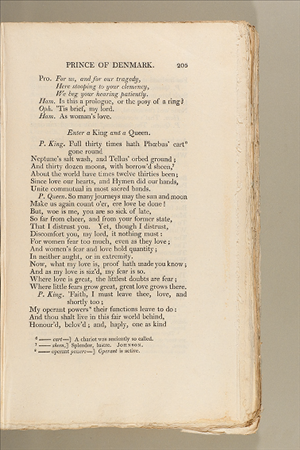 PRINCE OF DENMARK. 205
Pro. For us, and for our tragedy,
Here stooping to your clemency,
We beg your hearing patiently.
Ham. Is this a prologue, or the posy of a ring?
Oph. 'Tis brief, my lord.
Ham. As woman's love.
Enter a King and a Queen.
P. King. Full thirty times hath Phœbus' cart
gone round
Neptune's salt wash, and Tellus' orbed ground;
And thirty dozen moons, with borrow'd sheen,
About the world have times twelve thirties been;
Since love our hearts, and Hymen did our hands,
Unite commutual in most sacred bands.
P. Queen. So many journeys may the sun and moon
Make us again count o'er, ere love be done!
But, woe is me, you are so sick of late,
So far from cheer, and from your former state,
That I distrust you. Yet, though I distrust,
Discomfort you, my lord, it nothing must:
For women fear too much, even as they love;
And women's fear and love hold quantity;
In neither aught, or in extremity.
Now, what my love is, proof hath made you know;
And as my love is siz'd, my fear is so.
Where love is great, the littlest doubts are fear;
Where little fears grow great, great love grows there.
P. King. 'Faith, I must leave thee, love, and
shortly too;
My operant powers their functions leave to do:
And thou shalt live in this fair world behind,
Honour'd, belov'd; and, haply, one as kind
—— cart—] A chariot was anciently so called.
—— sheen,] Splendor, lustre. JOHNSON.
—— operant powers—] Operant is active.